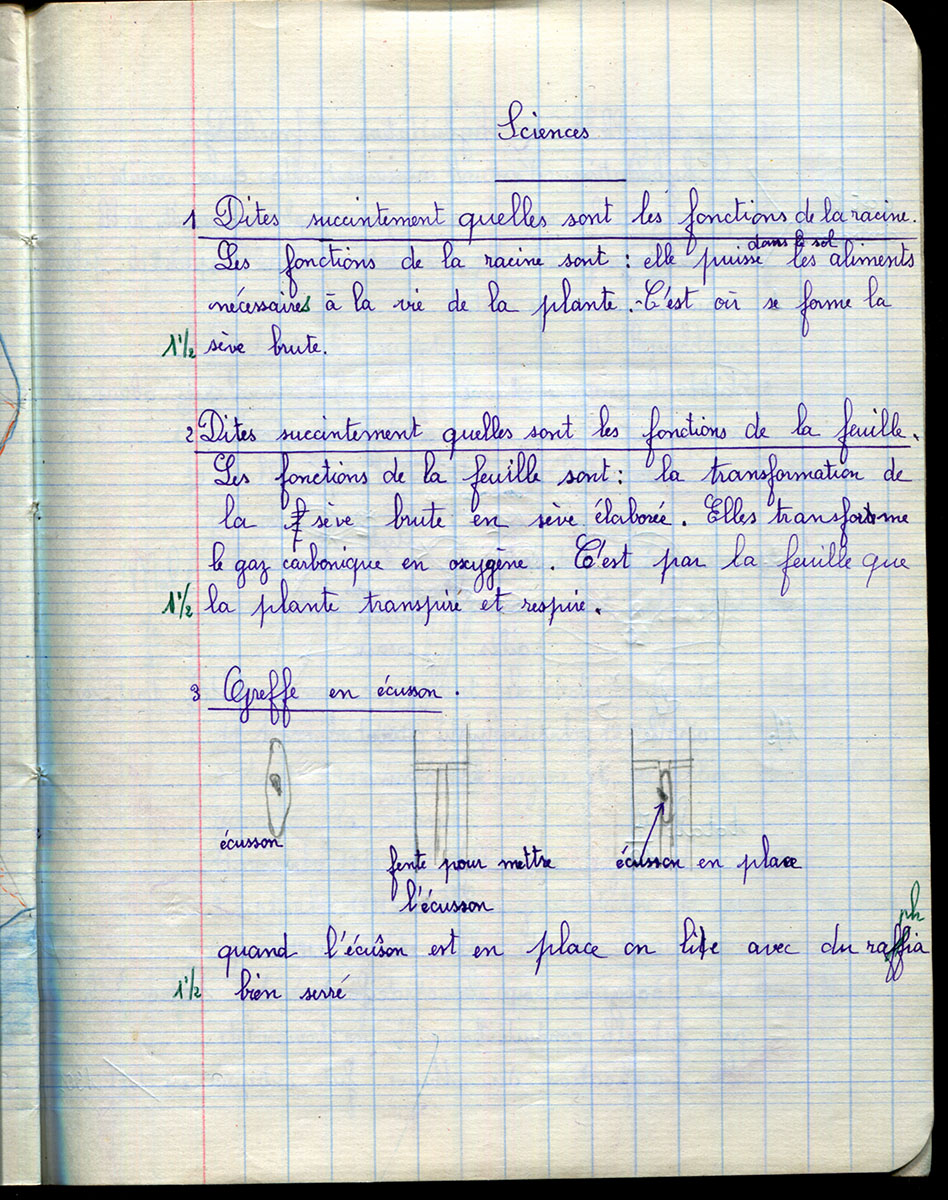 Sciences
1 Dites succintement quelles sont les fonctions de la racine.
dans le sol
Les fonctions de la racine sont : elle puise les aliments
nécessaires à la vie de la plante. C'est où se forme la
1 1/2 sève brute.
2 Dites succintement quelles sont les fonctions de la feuille.
Les fonctions de la feuille sont : la transformation de
la sève brute en sève élaborée. Elles transforme
le gaz carbonique en oxygène. C'est par la feuille que
1 1/2 la plante transpire et respire.
3 Greffe en écusson.
écusson
fente pour mettre
l'écusson
écusson en place
ph
quand l'écusson est en place on lie avec du raffia
1 1/2 bien serré